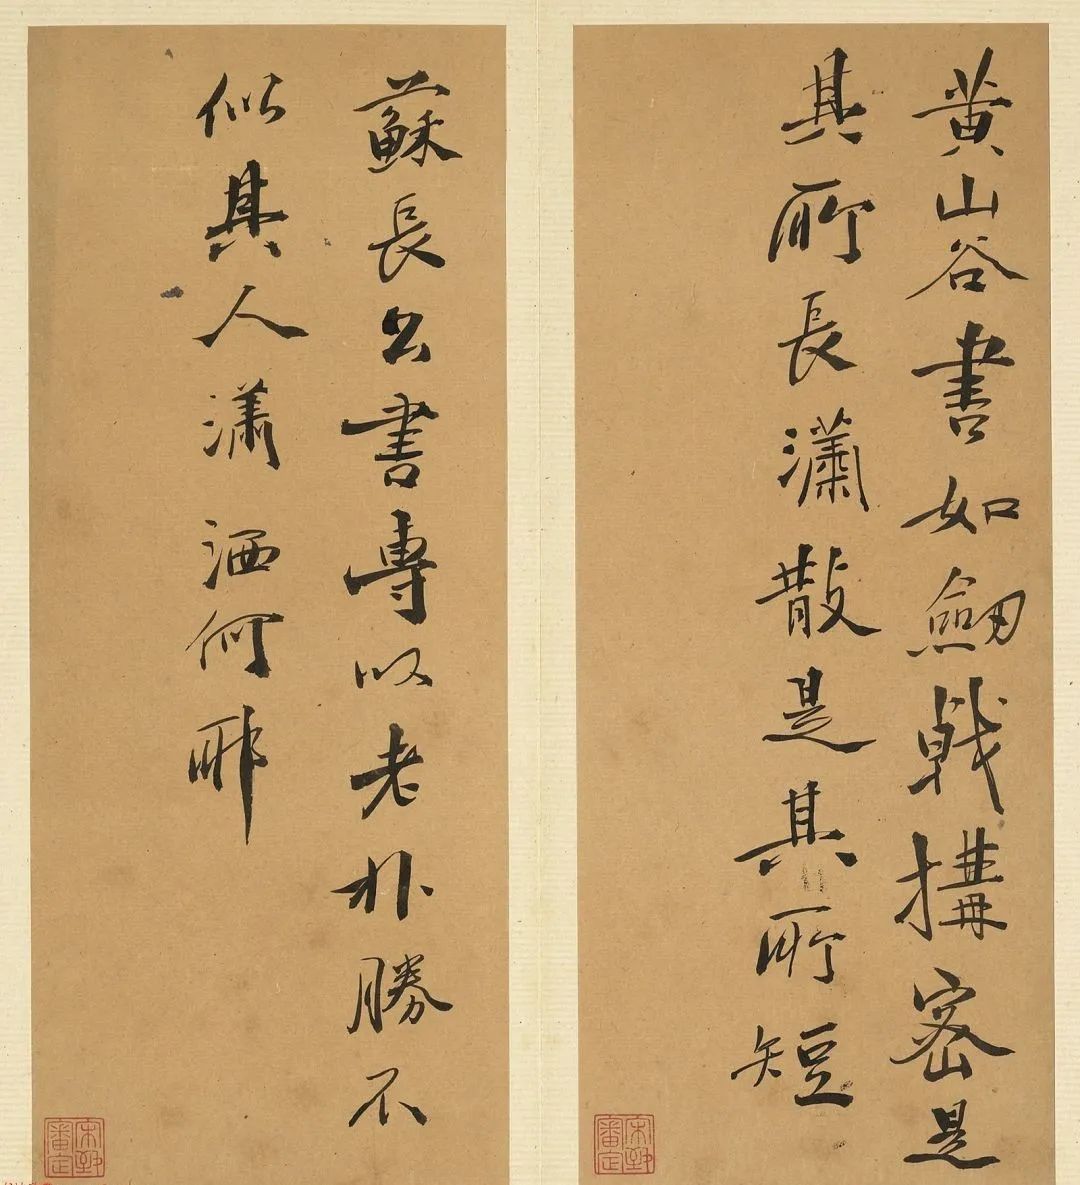 黄山谷書如劒戟搆密是
其所長瀟散是其所短
蘇長公書專以老朴勝不
似其人瀟洒何耶
宋致審定
宋致審定